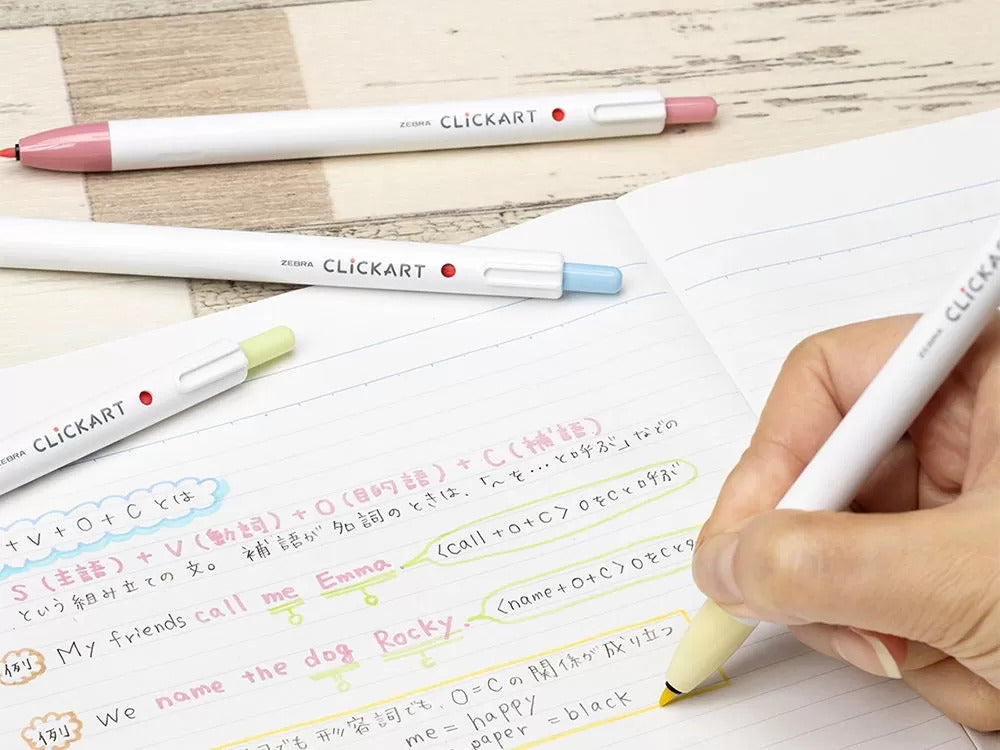 ZEBRA CLiCKART
ZEBRA CLiCKART
ZEBRA CLiCKART
ZEBRA CLiCK
+ V + O + C とは
S (主語) + V (動詞) + O (目的語) + C (補語)
という組み立ての文。補語が名詞のときは、「~を…と呼ぶ」などの
例 My friends call me Emma. 〈call+O+C〉OをCと呼ぶ
例 We name the dog Rocky. 〈name+O+C〉OをCと
でも形容詞でも、O=Cの関係が成り立つ
me = happy
paper = black